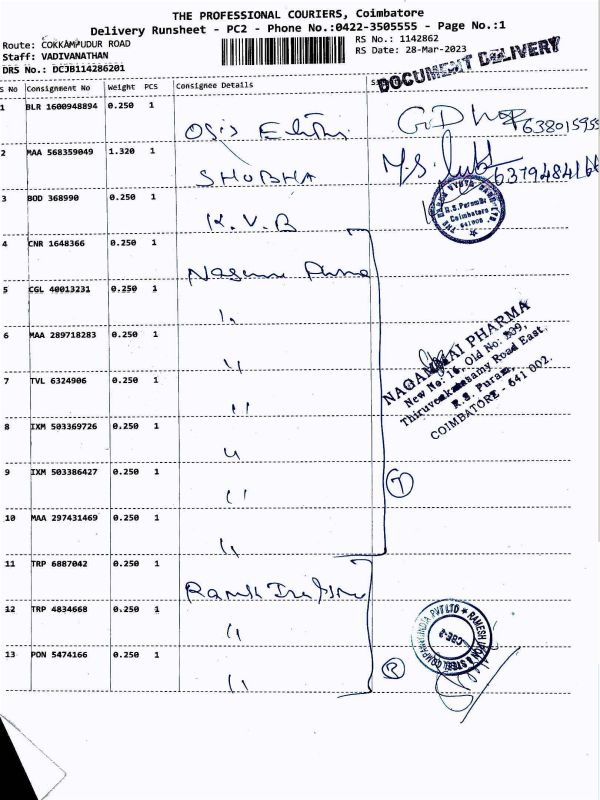 THE PROFESSIONAL COURIERS, Coimbatore
Delivery Runsheet - PC2 - Phone No.:0422-3505555 - Page No.:1
Route: COKKAMPUDUR ROAD
RS No.: 1142862
Staff: VADIVANATHAN
RS Date: 28-Mar-2023
DRS No.: DCJB114286201
DOCUMENT DELIVERY
S No Consignment No Weight PCS Consignee Details
1 BLR 1600948894 0.250 1
2 MAA 568359049 1.320 1 SHOBHA
6379484166
3 BOD 368990 0.250 1 K.V.B
R.S.Puram
Coimbatore
641002
4 CNR 1648366 0.250 1
5 CGL 40013231 0.250 1 "
6 MAA 289718283 0.250 1 "
7 TVL 6324906 0.250 1 "
8 IXM 503369726 0.250 1 "
9 IXM 503386427 0.250 1 "
10 MAA 297431469 0.250 1 "
NAGAMMAI PHARMA
New No: 16, Old No: 209,
Thiruvenkatasamy Road East,
R.S. Puram,
COIMBATORE - 641 002.
7
11 TRP 6887042 0.250 1
12 TRP 4834668 0.250 1 "
13 PON 5474166 0.250 1 "
RAMESH IRON & STEEL COMPANY INDIA PVT LTD
CBE-2